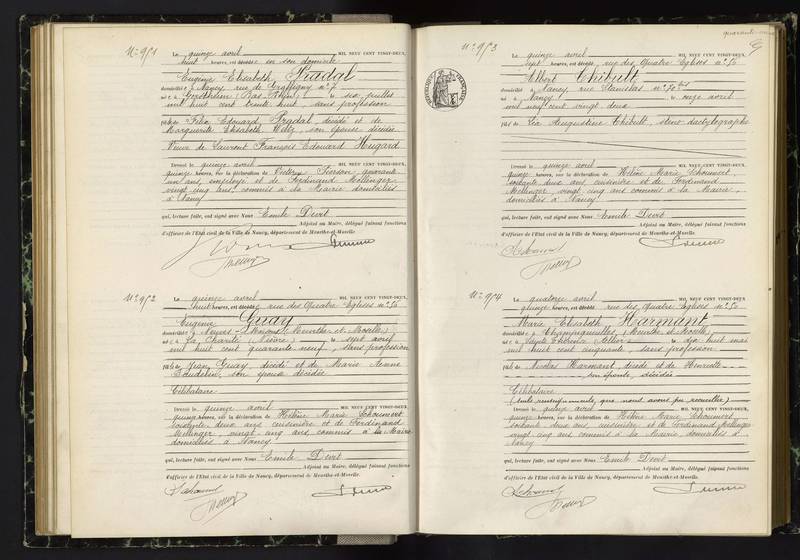 N° 951
Le quinze avril MIL NEUF CENT VINGT-DEUX,
huit heures, est décédée en son domicile
Eugénie Elisabeth Pradal
domiciliée à Nancy, rue de Graffigny n° 7
née à (Bas-Rhin), le six juillet
mil huit cent trente huit, sans profession
fille de Félix Edouard Pradal décédé et de
Marguerite Elisabeth Walz, son épouse décédée
Veuve de Laurent François Edouard Hugard
Dressé le quinze avril MIL NEUF CENT VINGT-DEUX,
quinze heures, sur la déclaration de Pierson, quarante
un ans, employé et de Ferdinand Mellinger
vingt cinq ans, commis à la Mairie domiciliés
à Nancy
qui, lecture faite, ont signé avec Nous Emile Devit
Adjoint au Maire, délégué faisant fonctions
d'officier de l'Etat civil de la Ville de Nancy, département de Meurthe-et-Moselle.
N° 952
Le quinze avril MIL NEUF CENT VINGT-DEUX,
huit heures, est décédée rue des Quatre Eglises n° 50
Eugénie Guay
domiciliée à Neuves-Maisons (Meurthe-et-Moselle)
née à La Charité (Nièvre) le sept avril
mil huit cent quarante-neuf, sans profession
fille de Jean Guay, décédé et de Marie Anne
son épouse décédée
Célibataire
Dressé le quinze avril MIL NEUF CENT VINGT-DEUX,
quinze heures, sur la déclaration de Hélène Marie Schouwert
soixante deux ans, cuisinière et de Ferdinand
Mellinger, vingt cinq ans, commis à la Mairie
domiciliés à Nancy
qui, lecture faite, ont signé avec Nous Emile Devit
Adjoint au Maire, délégué faisant fonctions
d'officier de l'Etat civil de la Ville de Nancy, département de Meurthe-et-Moselle.
N° 953
Le quinze avril MIL NEUF CENT VINGT-DEUX,
sept heures, est décédé rue des Quatre Eglises n° 50
Albert Thibult
domicilié à Nancy, rue Stanislas n° 70 bis
né à Nancy le onze avril
mil neuf cent vingt deux
fils de Léa Augustine Thibult, sténo dactylographe
Dressé le quinze avril MIL NEUF CENT VINGT-DEUX,
quinze heures, sur la déclaration de Hélène Marie Schouwert,
soixante deux ans, cuisinière et de Ferdinand
Mellinger, vingt cinq ans commis à la Mairie,
domiciliés à Nancy
qui, lecture faite, ont signé avec Nous Emile Devit
Adjoint au Maire, délégué faisant fonctions
d'officier de l'Etat civil de la Ville de Nancy, département de Meurthe-et-Moselle.
N° 954
Le quatorze avril MIL NEUF CENT VINGT-DEUX,
quinze heures, est décédée rue des Quatre Eglises n° 50
Marie Elisabeth Harmant
domiciliée à Champigneulles (Meurthe et Moselle)
née à Sainte Thérence (Allier) le dix huit mai
mil huit cent cinquante, sans profession
fille de Nicolas Harmant décédé et de Henriette
son épouse, décédée
Célibataire
(seuls renseignements que nous avons pu recueillir)
Dressé le quinze avril MIL NEUF CENT VINGT-DEUX,
quinze heures, sur la déclaration de Hélène Marie Schouwert,
soixante deux ans, cuisinière et de Ferdinand Mellinger
vingt cinq ans commis à la Mairie, domiciliés à
Nancy
qui, lecture faite, ont signé avec Nous Emile Devit
Adjoint au Maire, délégué faisant fonctions
d'officier de l'Etat civil de la Ville de Nancy, département de Meurthe-et-Moselle.